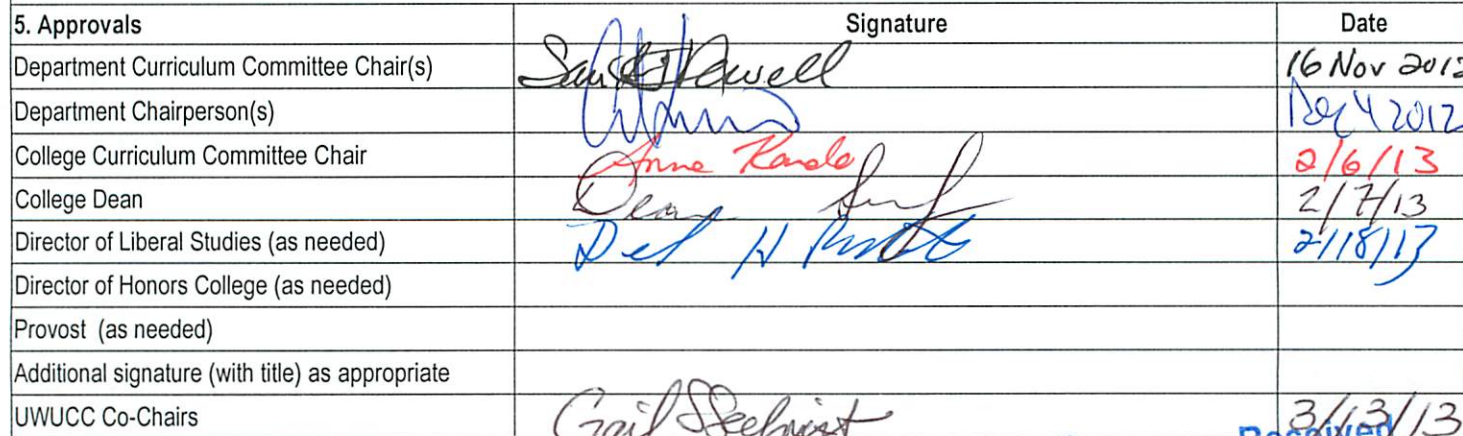 5. Approvals Signature Date
Department Curriculum Committee Chair(s) 16 Nov 2012
Department Chairperson(s) Dec 4 2012
College Curriculum Committee Chair Anne Kondo 2/6/13
College Dean Dean 2/7/13
Director of Liberal Studies (as needed) H 2/18/13
Director of Honors College (as needed)
Provost (as needed)
Additional signature (with title) as appropriate
UWUCC Co-Chairs Gail Sechrist 3/13/13
Received